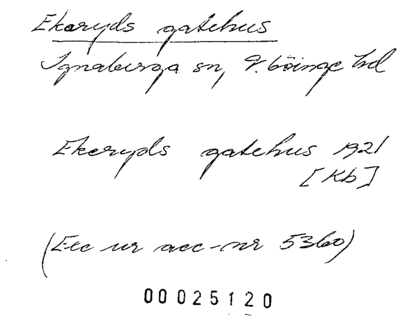 Ekeryds gatehus
Ignaberga sn, V. Göinge hd
Ekeryds gatehus 1921
[Kb]
(Exc ur acc-nr 5360)
00025120